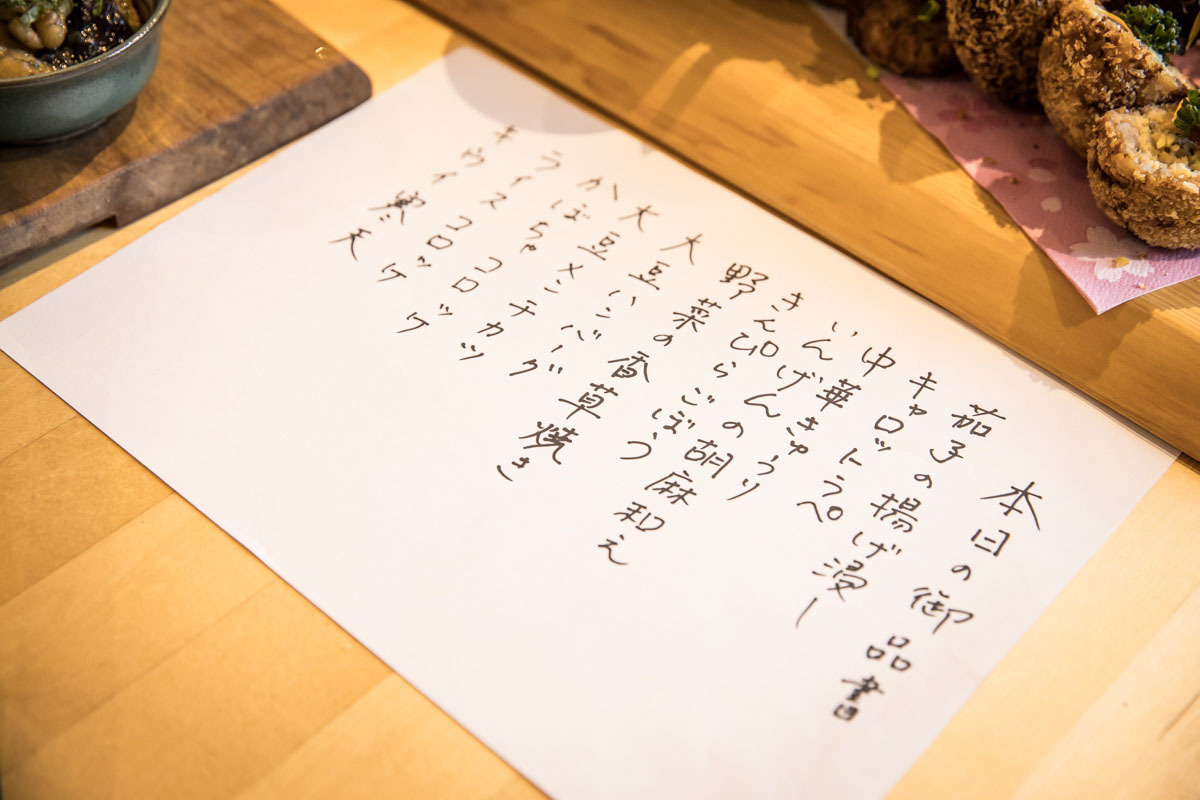 本日の御品書
茄子の揚げ浸し
キャロットラペ
中華きゅうり
いんげんの胡麻和え
きんぴらごぼう
野菜の香草焼き
大豆ハンバーグ
大豆メンチカツ
かぼちゃコロッケ
ライスコロッケ
キウィ寒天